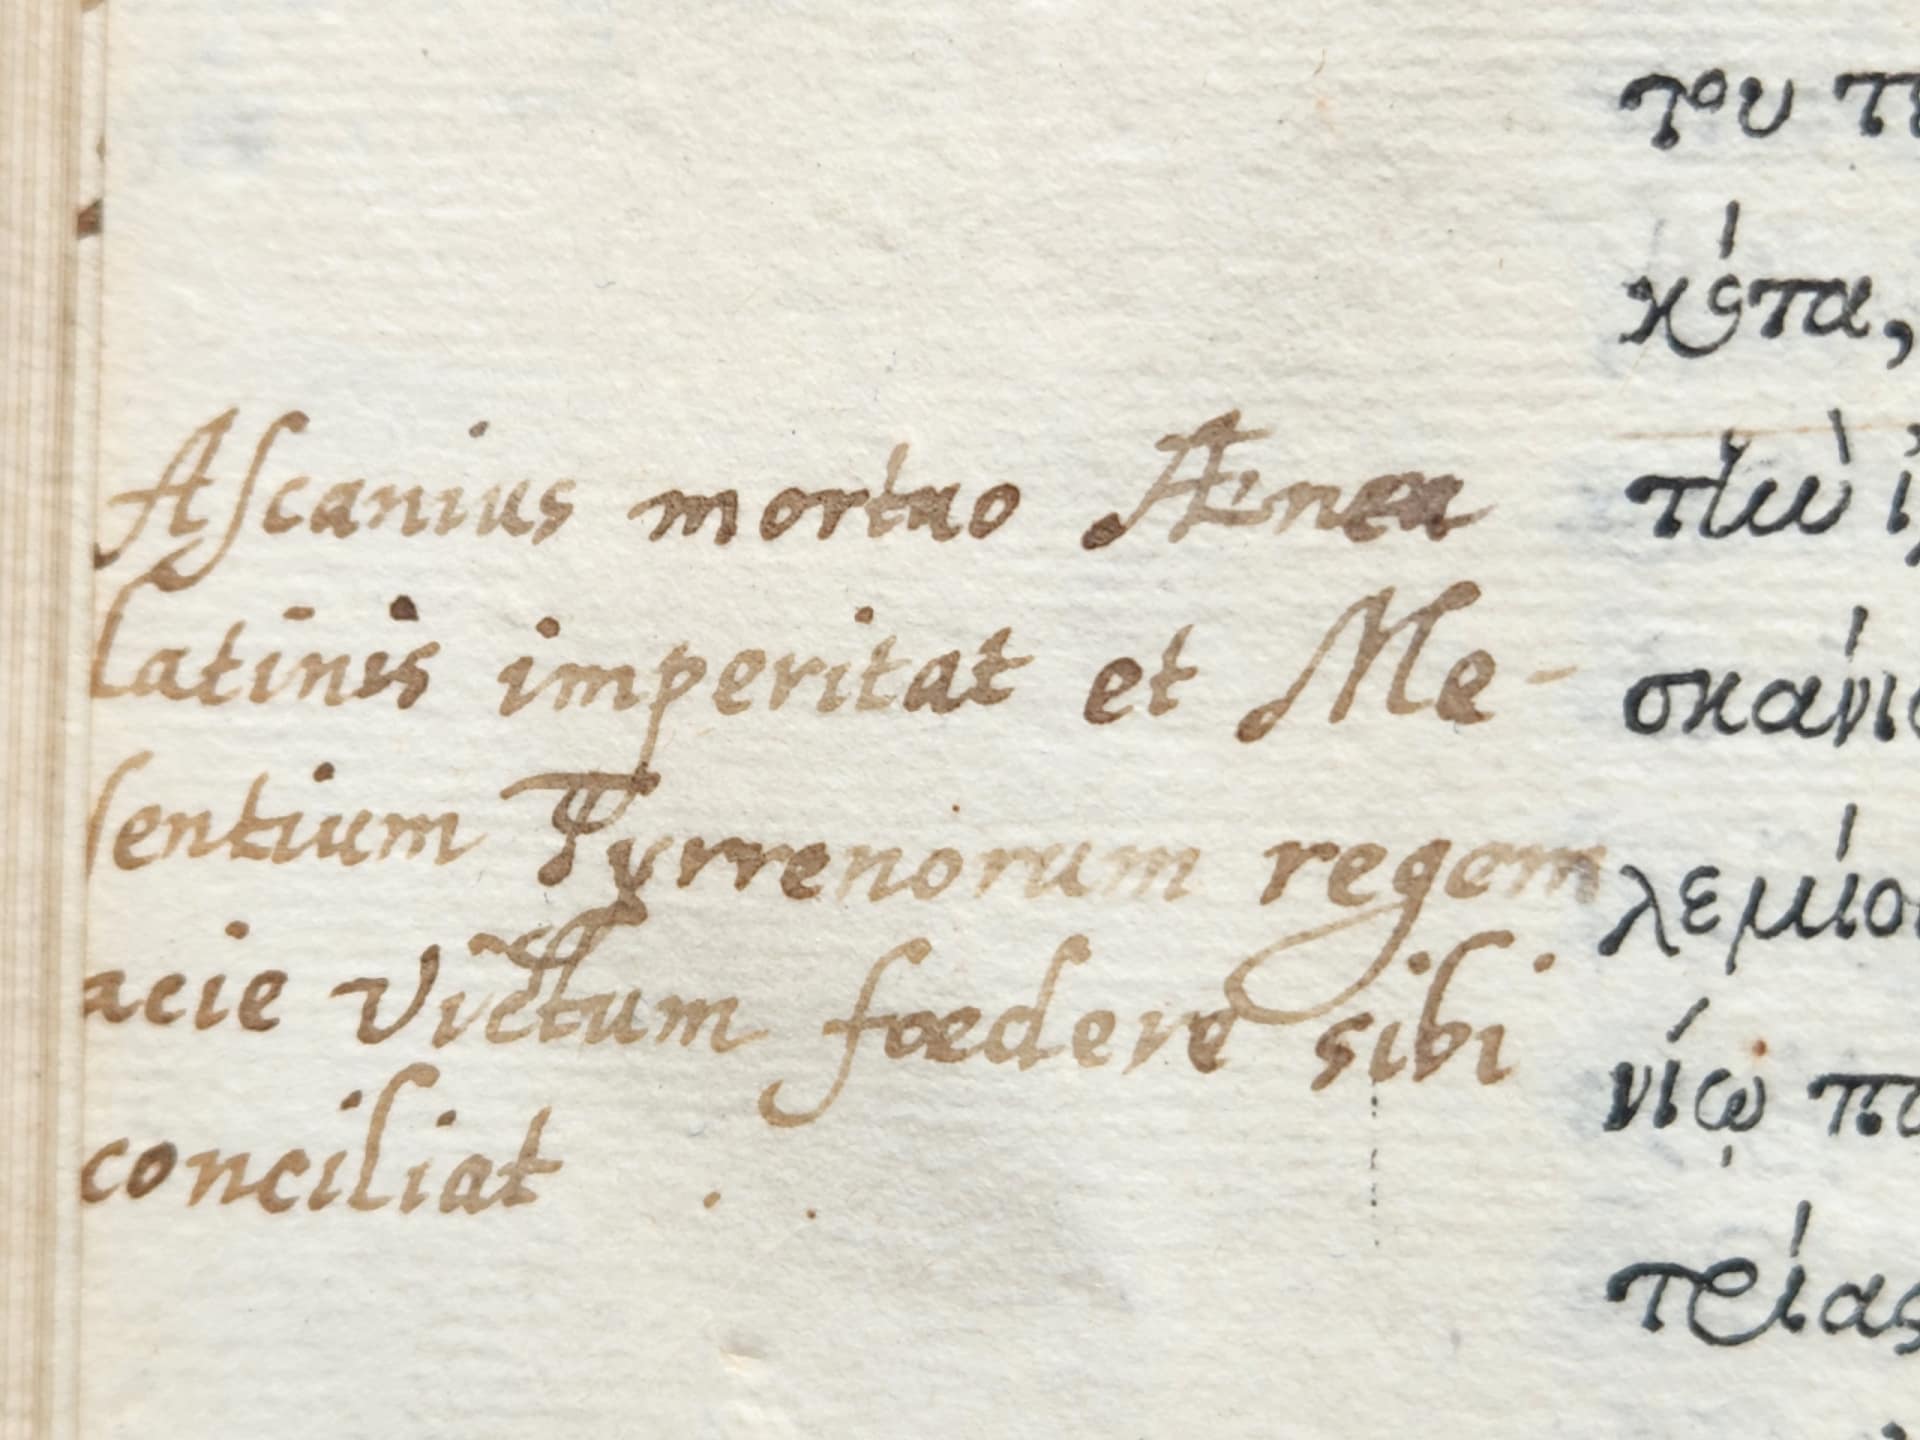 Ascanius mortuo Ænea
latinis imperitat et Me-
sentium Tyrrenorum regem
acie victum fœdere sibi
conciliat
του
κότα,
τὼ
σκάνι
λεμίο
νίῳ
τρίας